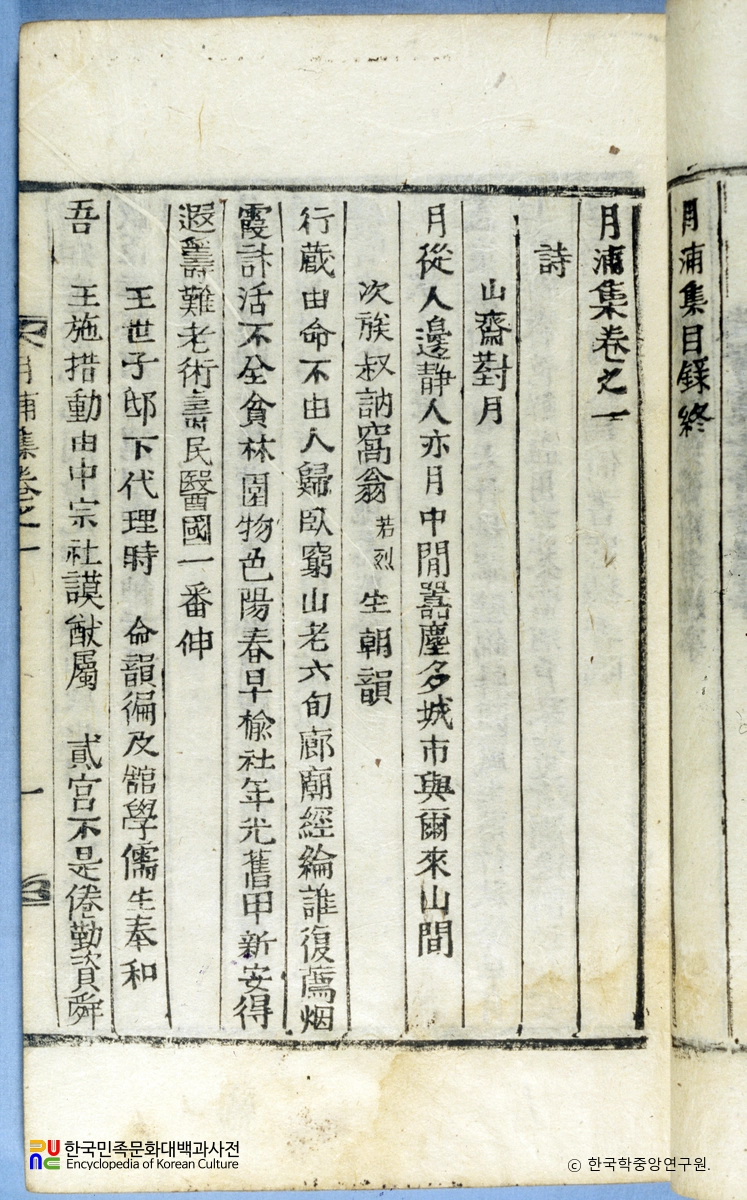 月浦集目錄終
月浦集卷之一
詩
山齋對月
月從人邊靜人亦月中閒囂塵多城市與爾來山間
次族叔訥窩翁 若烈 生朝韻
行藏由命不由人歸臥窮山老六旬廊廟經綸誰復薦烟
霞計活不全貧林園物色陽春早楡社年光舊甲新安得
遐籌難老術壽民醫國一番伸
王世子邸下代理時 命韻徧及舘學儒生奉和
吾 王施措動由中宗社謨猷屬 貳宮不是倦勤資舜
月浦集卷之一
一
한국민족문화대백과사전
Encyclopedia of Korean Culture
© 한국학중앙연구원.